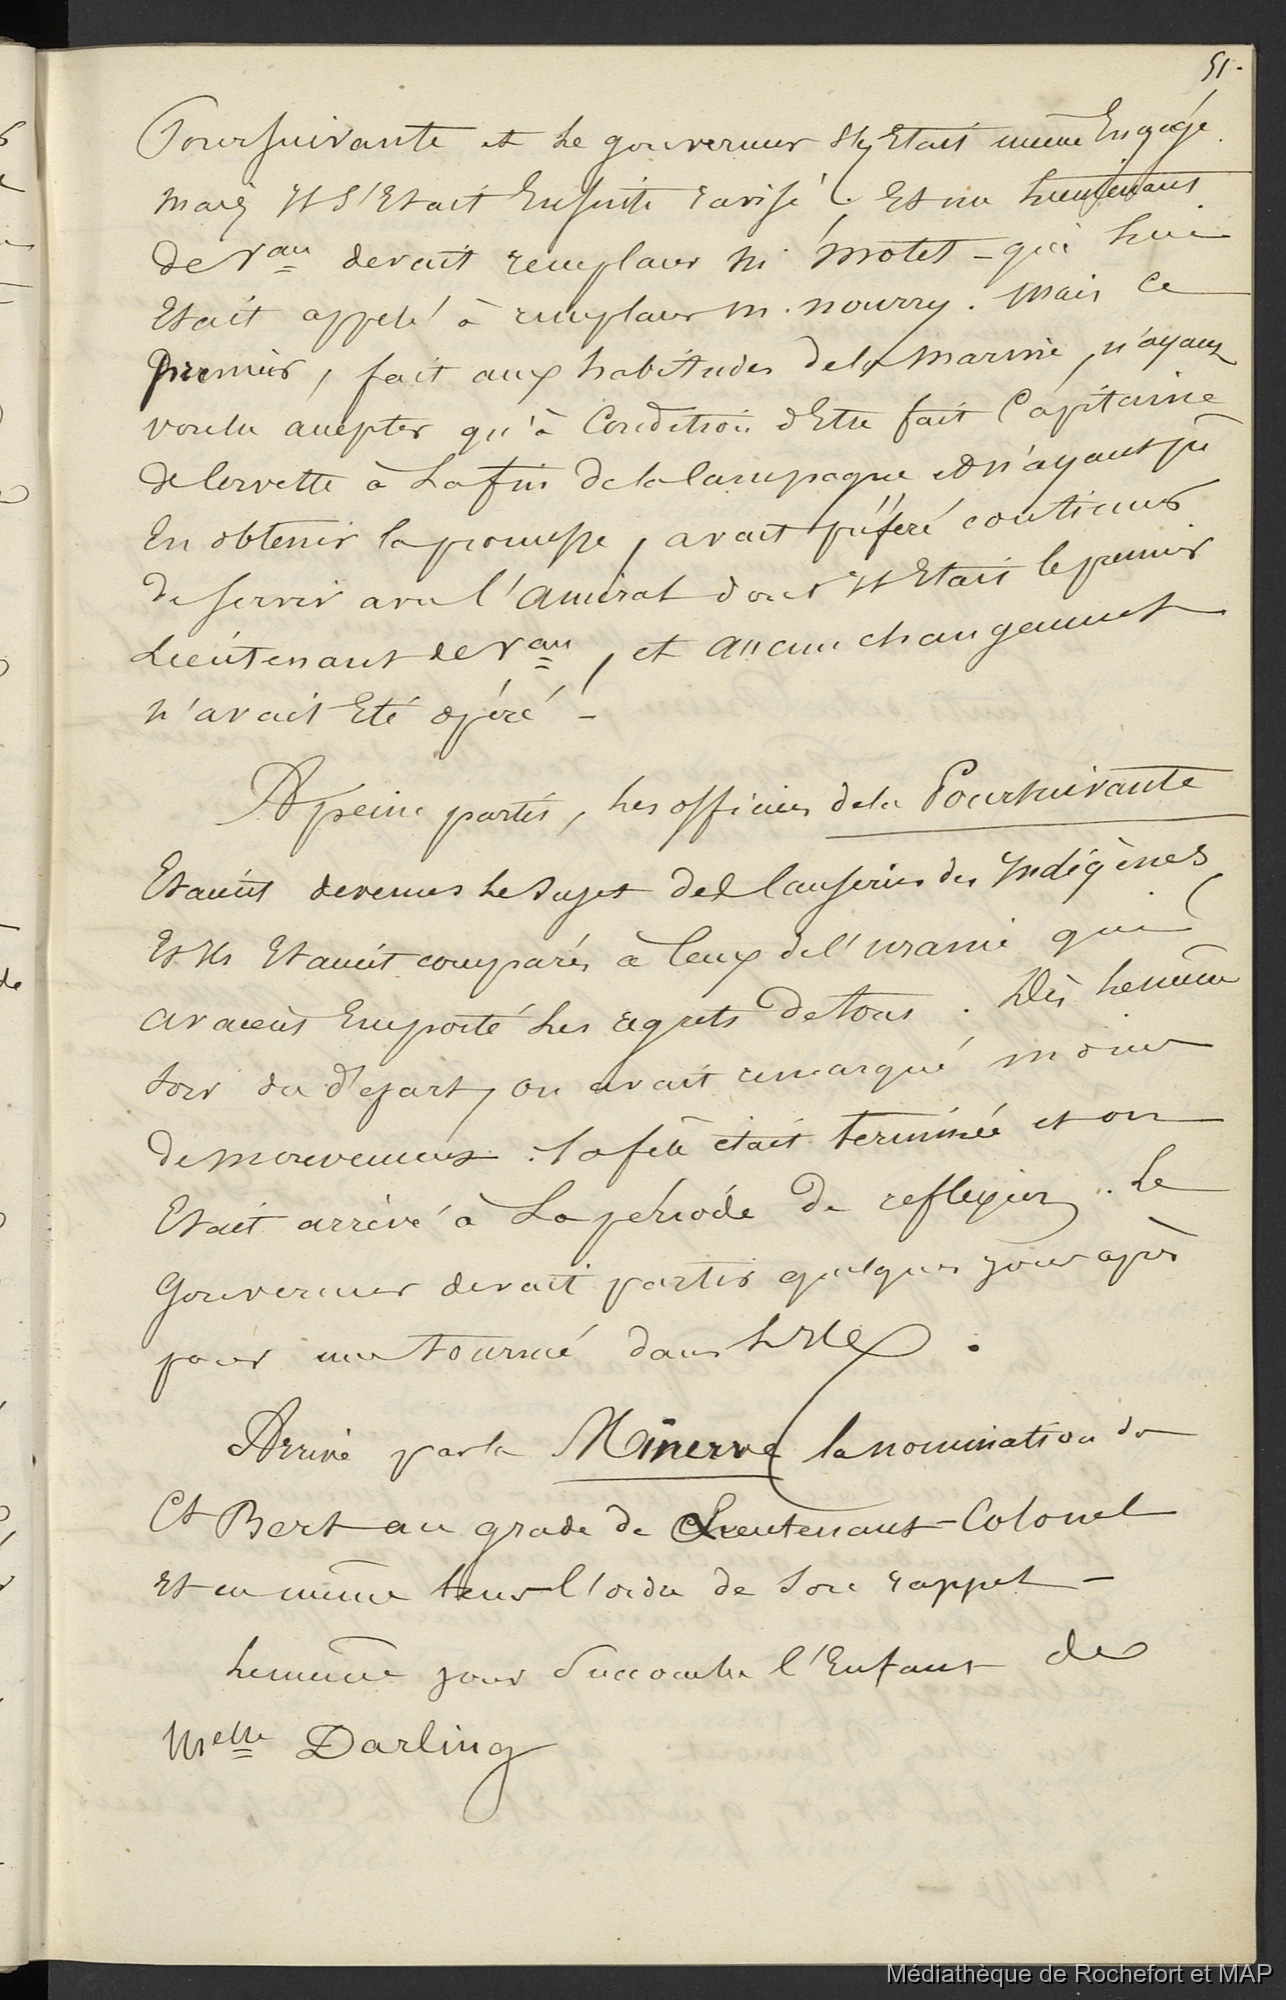 51.
Poursuivante et le gouverneur s'y Etait même Engagé.
mais Il S'Etait Ensuite ravisé. Et un lieutenant
de Vau devait remplacer Mr Motet - qui lui
Etait appelé à remplacer M. Nourry. Mais ce
premier, fait aux habitudes de la Marine, n'ayant
voulu accepter qu'à Condition d'Etre fait Capitaine
de Corvette à La fin de la Campagne et n'ayant pû
En obtenir la promesse, avait préféré continuer
De servir avec l'Amiral dont Il Etait le premier
Lieutenant de Vau, et aucun changement
n'avait Eté opéré -
A peine partis, Les officiers de la Poursuivante
Etaient devenus Le Sujet des Causeries des Indigènes
Et Ils Etaient comparés à Ceux de l'Uranie qui
avaient Emporté Les regrets De tous. Dès Le même
soir du Départ, on avait remarqué moins
De mouvement. La fête était terminée et on
Etait arrivé à La période De reflexion. Le
Gouverneur devait partir quelques jours après
pour une tournée dans L'Ile.
Arrive par la Minerve la nomination du
Ct Bert au grade de Lieutenant-Colonel
Et en même tems l'ordre de Son rappel -
Le même jour Succombe l'Enfant de
Melle Darling
Médiathèque de Rochefort et MAP